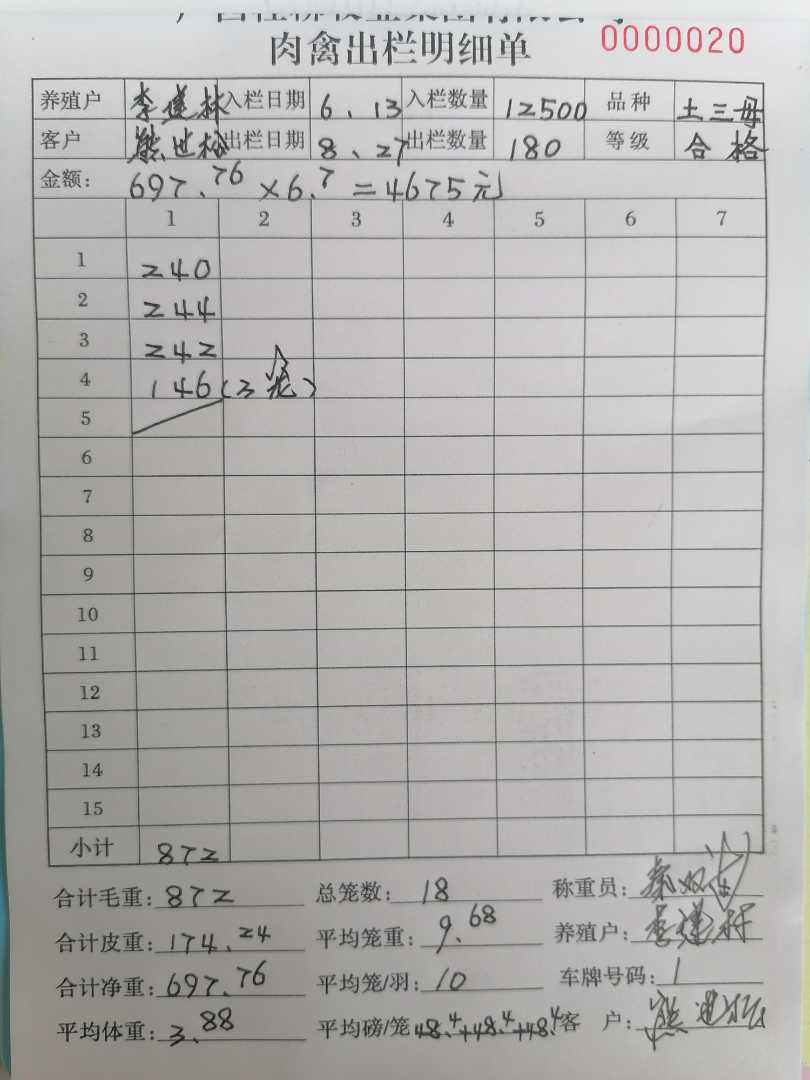 肉禽出栏明细单 0000020
养殖户 李建林 入栏日期 6、13 入栏数量 12500 品种 土三母
客户 熊世松 出栏日期 8、27 出栏数量 180 等级 合格
金额: 697.76 × 6.7 = 4675元
1 2 3 4 5 6 7
1 240
2 244
3 242
4 146(3笼)
5
6
7
8
9
10
11
12
13
14
15
小计 872
合计毛重: 872 总笼数: 18 称重员:
合计皮重: 174.24 平均笼重: 9.68 养殖户: 李建林
合计净重: 697.76 平均笼/羽: 10 车牌号码: 1
平均体重: 3.88 平均磅/笼 48.4+48.4+48.4 客户: